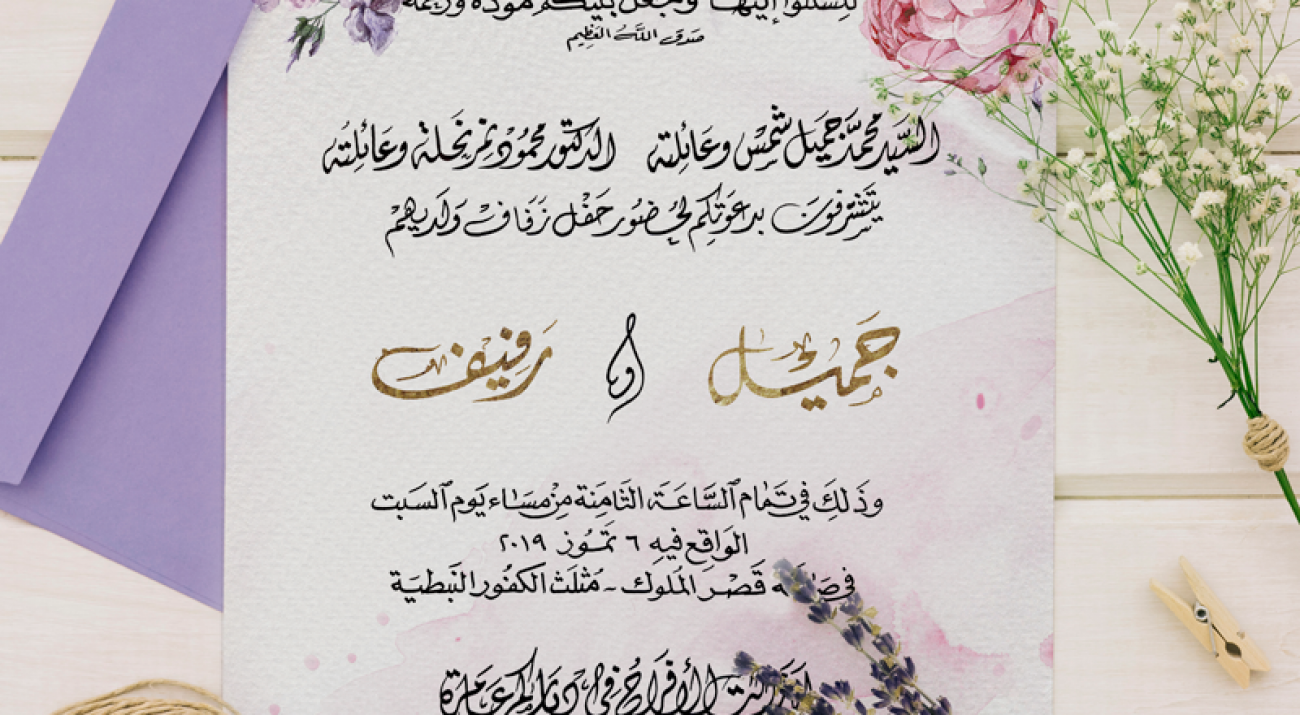 لتسكنوا إليها وجعل بينكم مودة ورحمة
صَدَقَ اللَّهُ العَظِيم
السَّيِّد محمَّد جَمِيل شَمْس وعَائِلته الدكتور محمُود نمر نَحلة وعَائِلتُه
يَتَشَرَّفُونَ بدعوَتِكم لحُضُور حَفْل زَفَافْ وَلَديهِمْ
جَميْل و رَفِيْف
وذَلِكَ في تمَام السَّاعَة الثَّامِنَة مِنْ مسَاء يَوم السَبت
الوَاقِع فيهِ ٦ تَمُّوز ٢٠١٩
في صَالة قَصْر المُلوك - مُثْلَث الكفُور النَبطيَة
الأفراح في دياركم عامرة